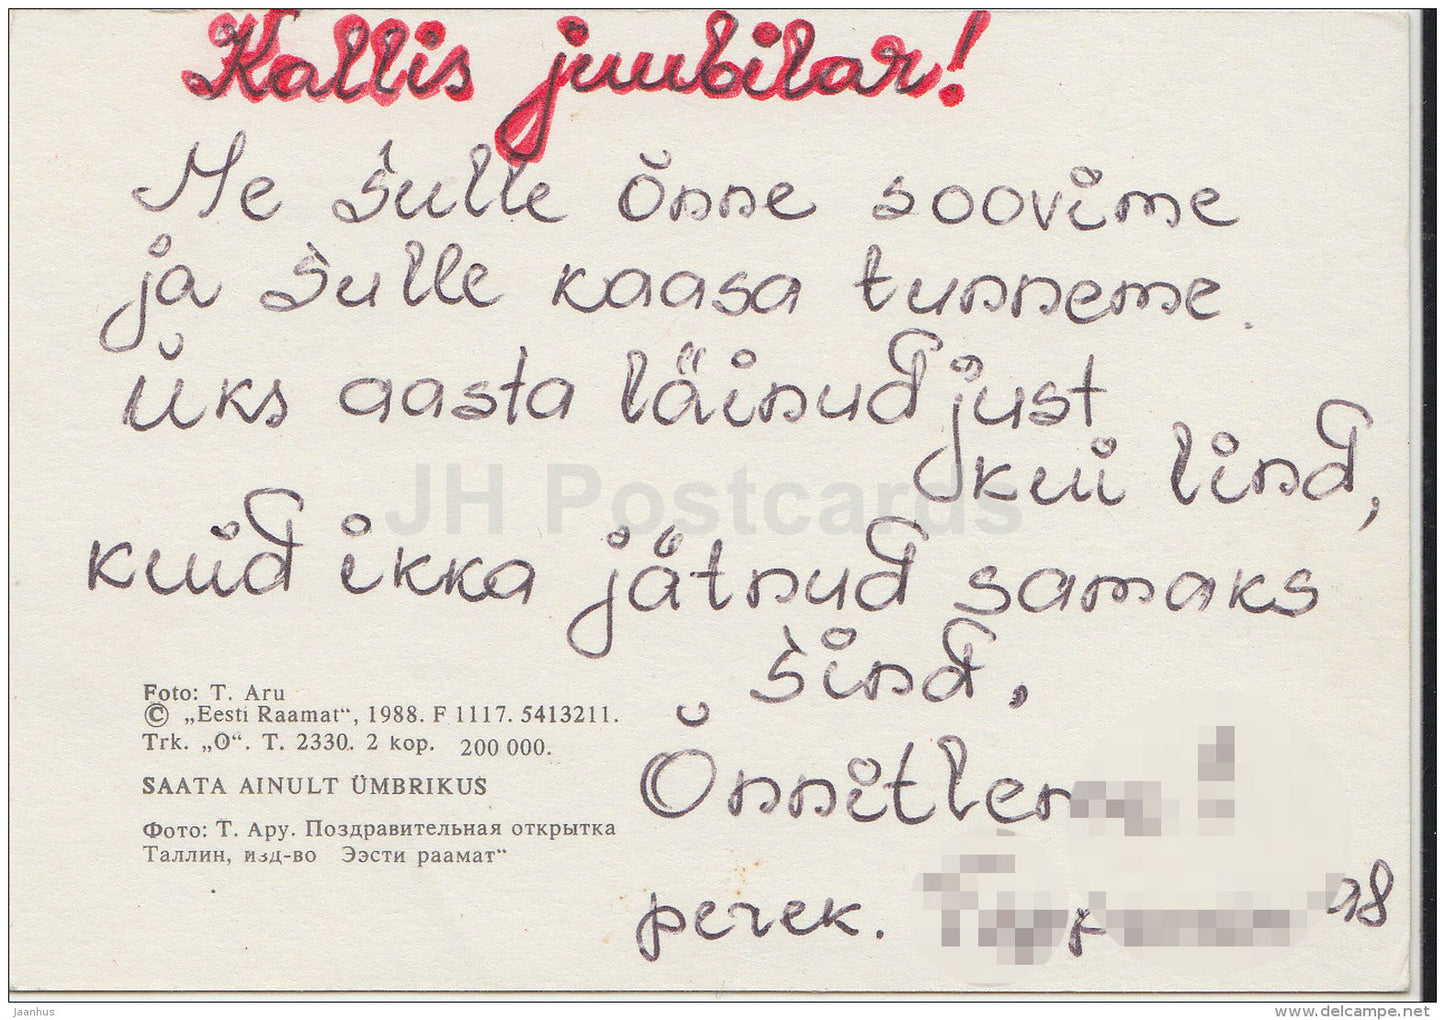 Kallis juubilar!
Me sulle õnne soovime
ja sulle kaasa tunneme.
Üks aasta läinud just
kui lind,
kuid ikka jätnud samaks
sind.
Foto: T. Aru
© „Eesti Raamat“, 1988. F 1117. 5413211.
Trk. „O“. T. 2330. 2 kop. 200 000.
SAATA AINULT ÜMBRIKUS
Фото: Т. Ару. Поздравительная открытка
Таллин, изд-во Ээсти раамат“
perek.
JH Postcards
jaanhus
www.delcampe.net